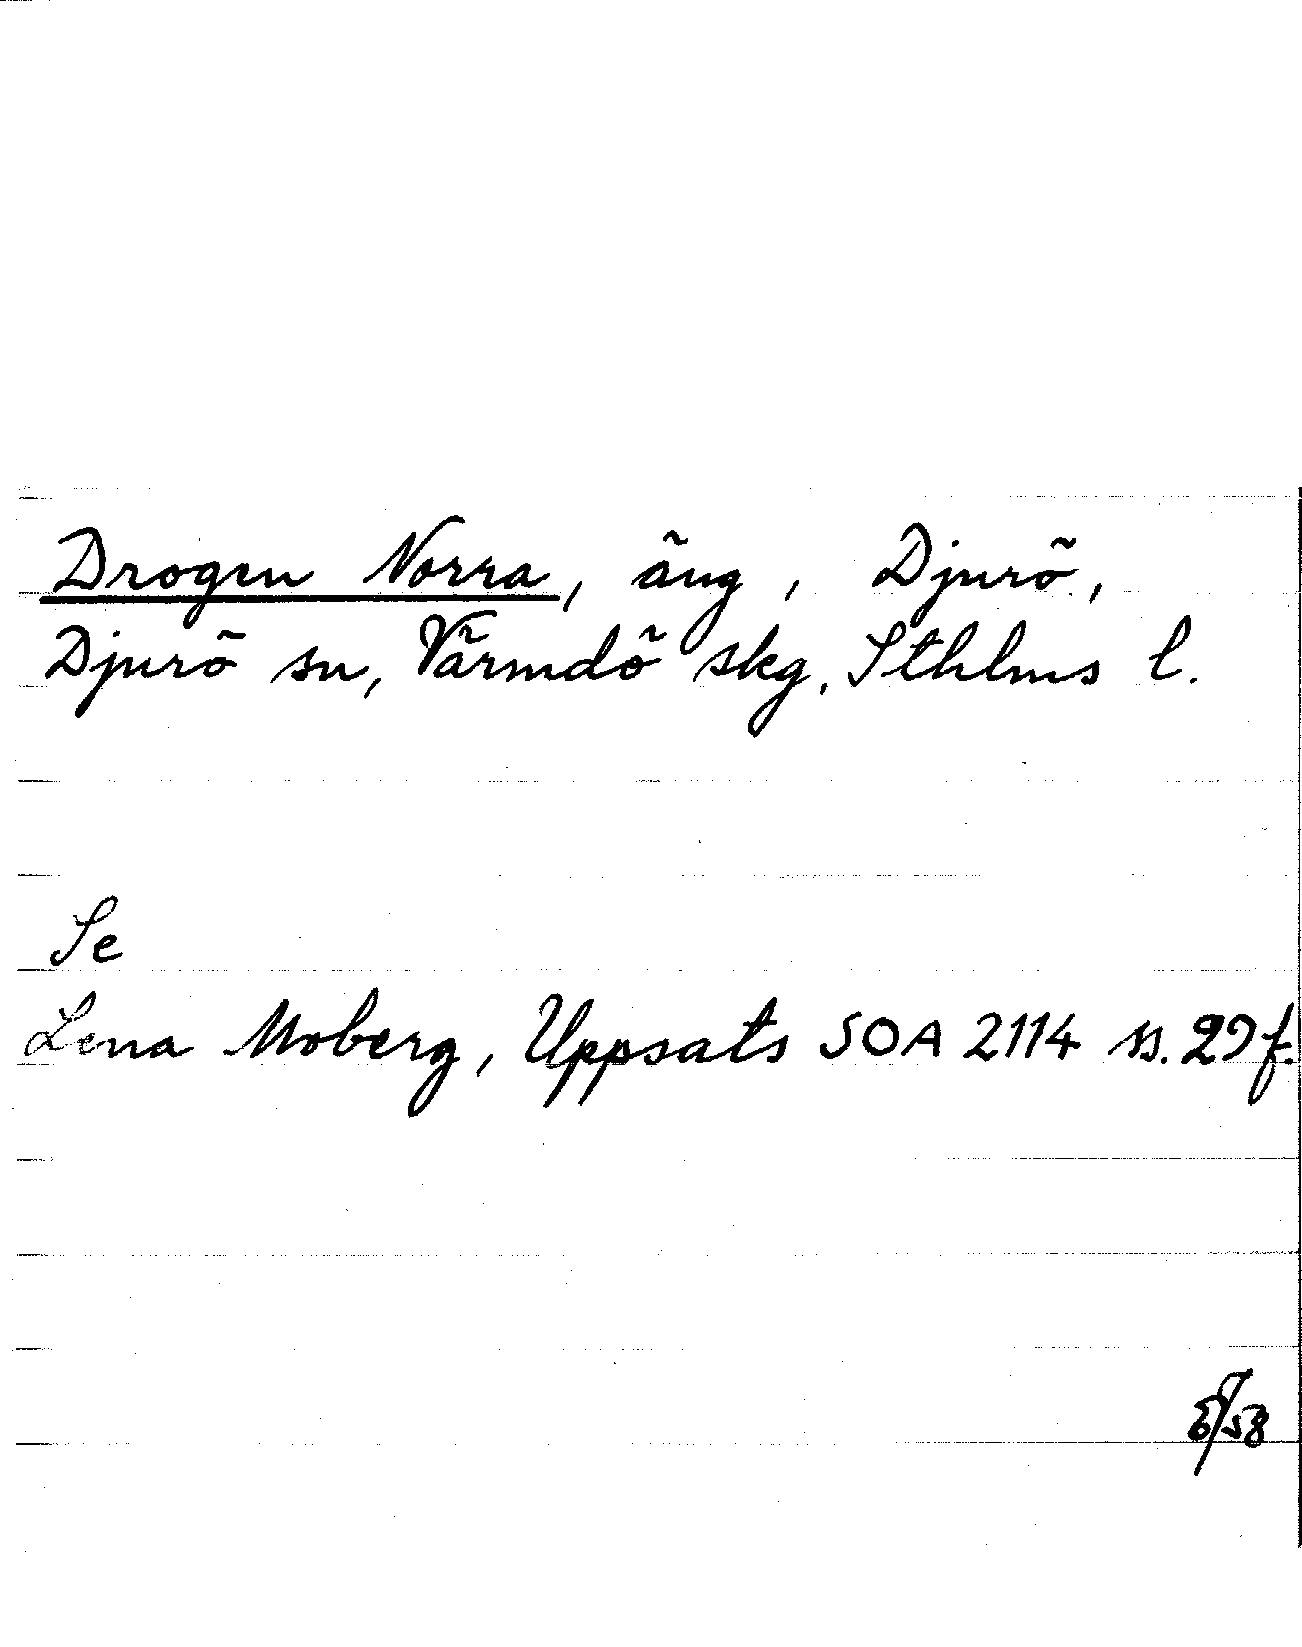 Drogen Norra, äng, Djurö,
Djurö sn, Värmdö skg, Sthlms l.
Se
Lena Moberg, Uppsats SOA 2114 ss. 29 f.